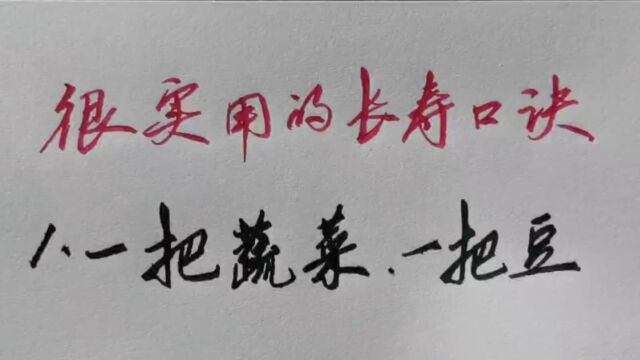 很实用的长寿口诀
1.一把蔬菜.一把豆